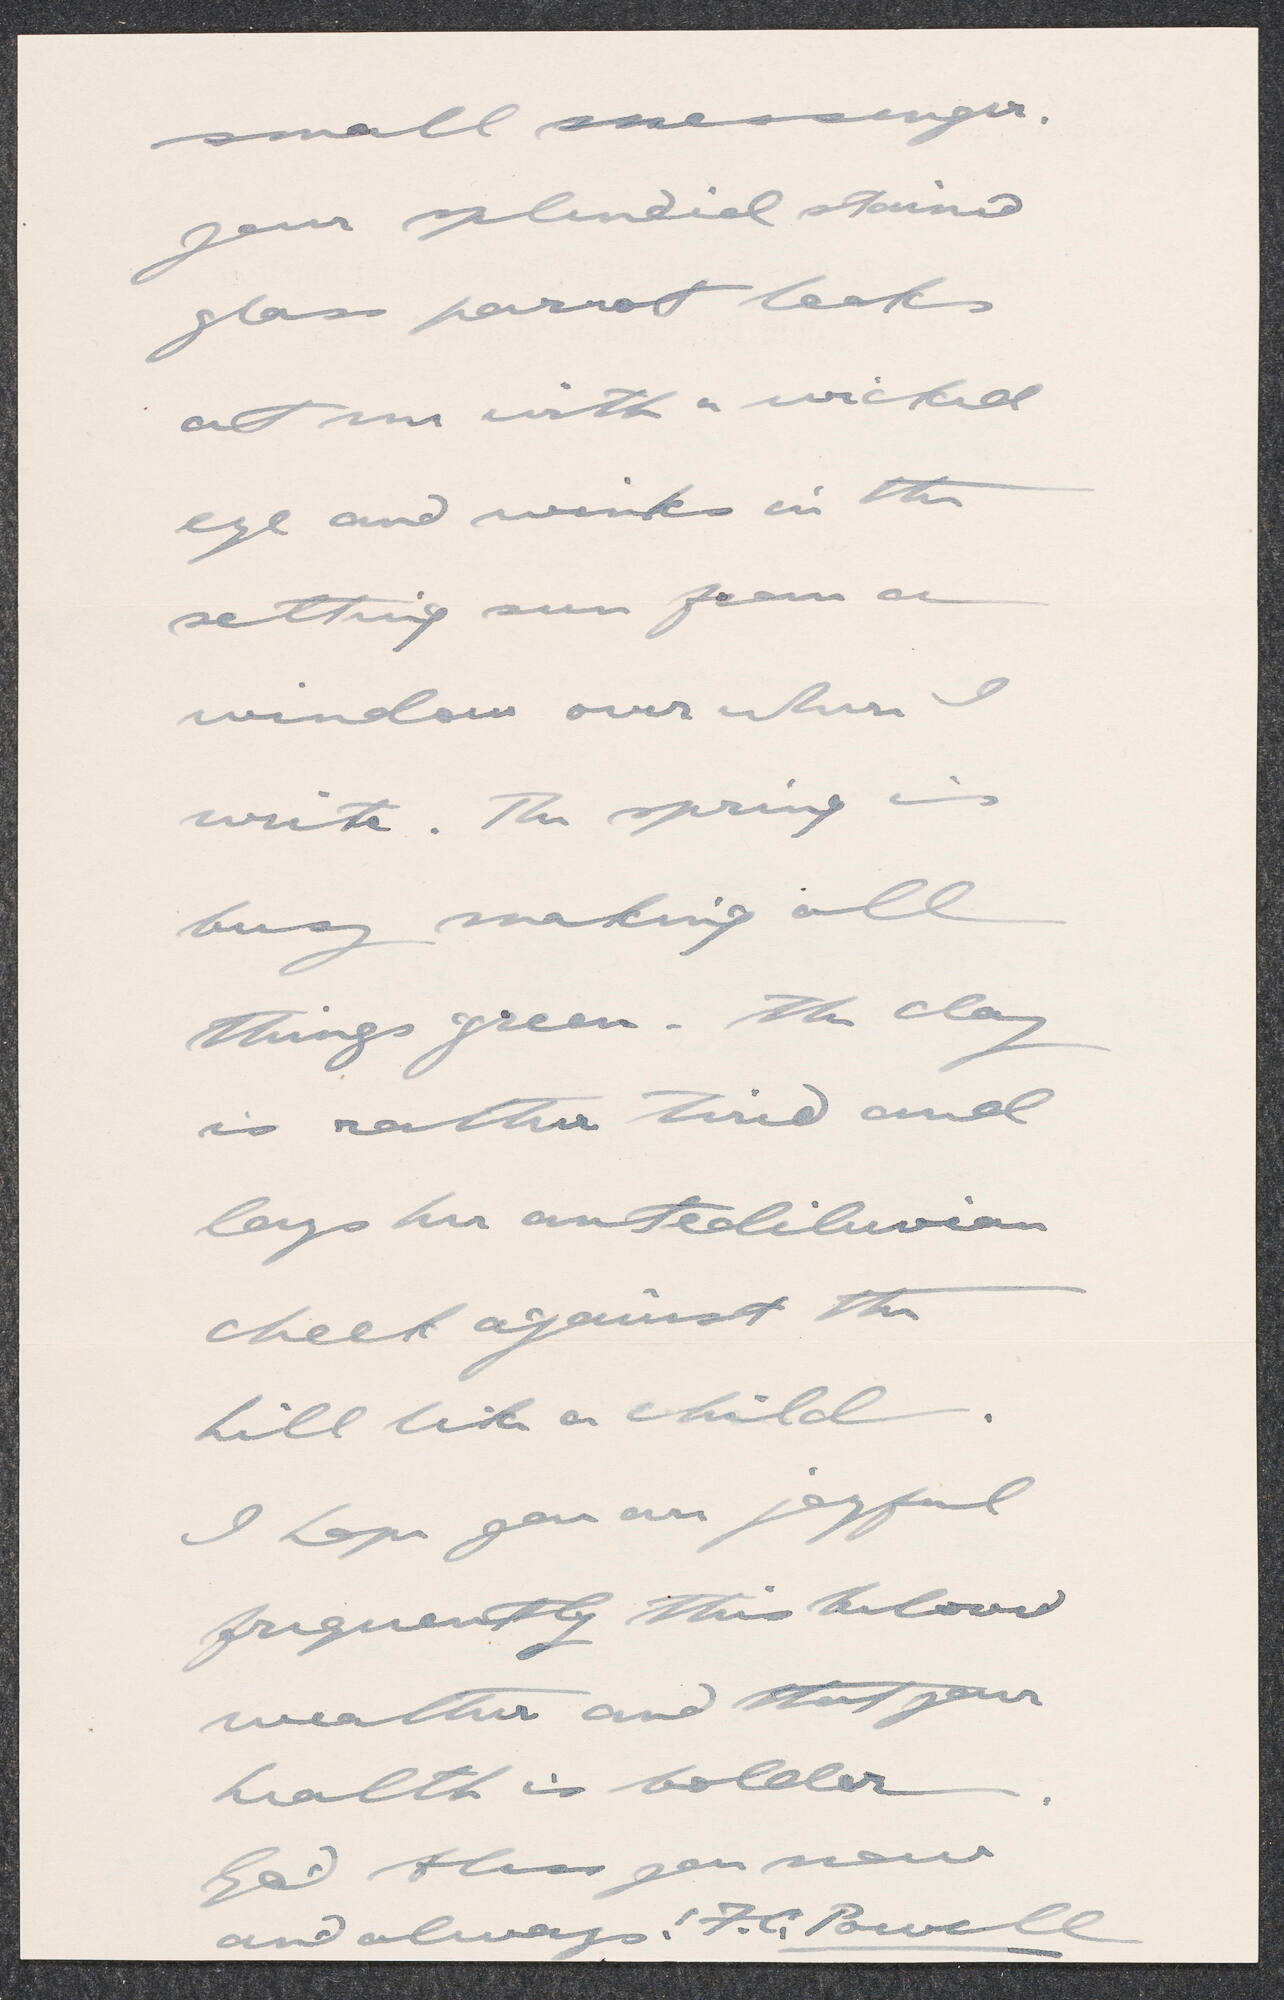 small messenger.
your splendid stained
glass parrot looks
at me with a wicked
eye and winks in the
setting sun from a
window over where I
write. The spring is
busy making all
things green. The day
is rather tired and
lays her antediluvian
cheek against the
hill like a child.
I hope you are joyful
frequently this beloved
weather and that your
health is bolder.
God bless you now
and always! F. C. Powell